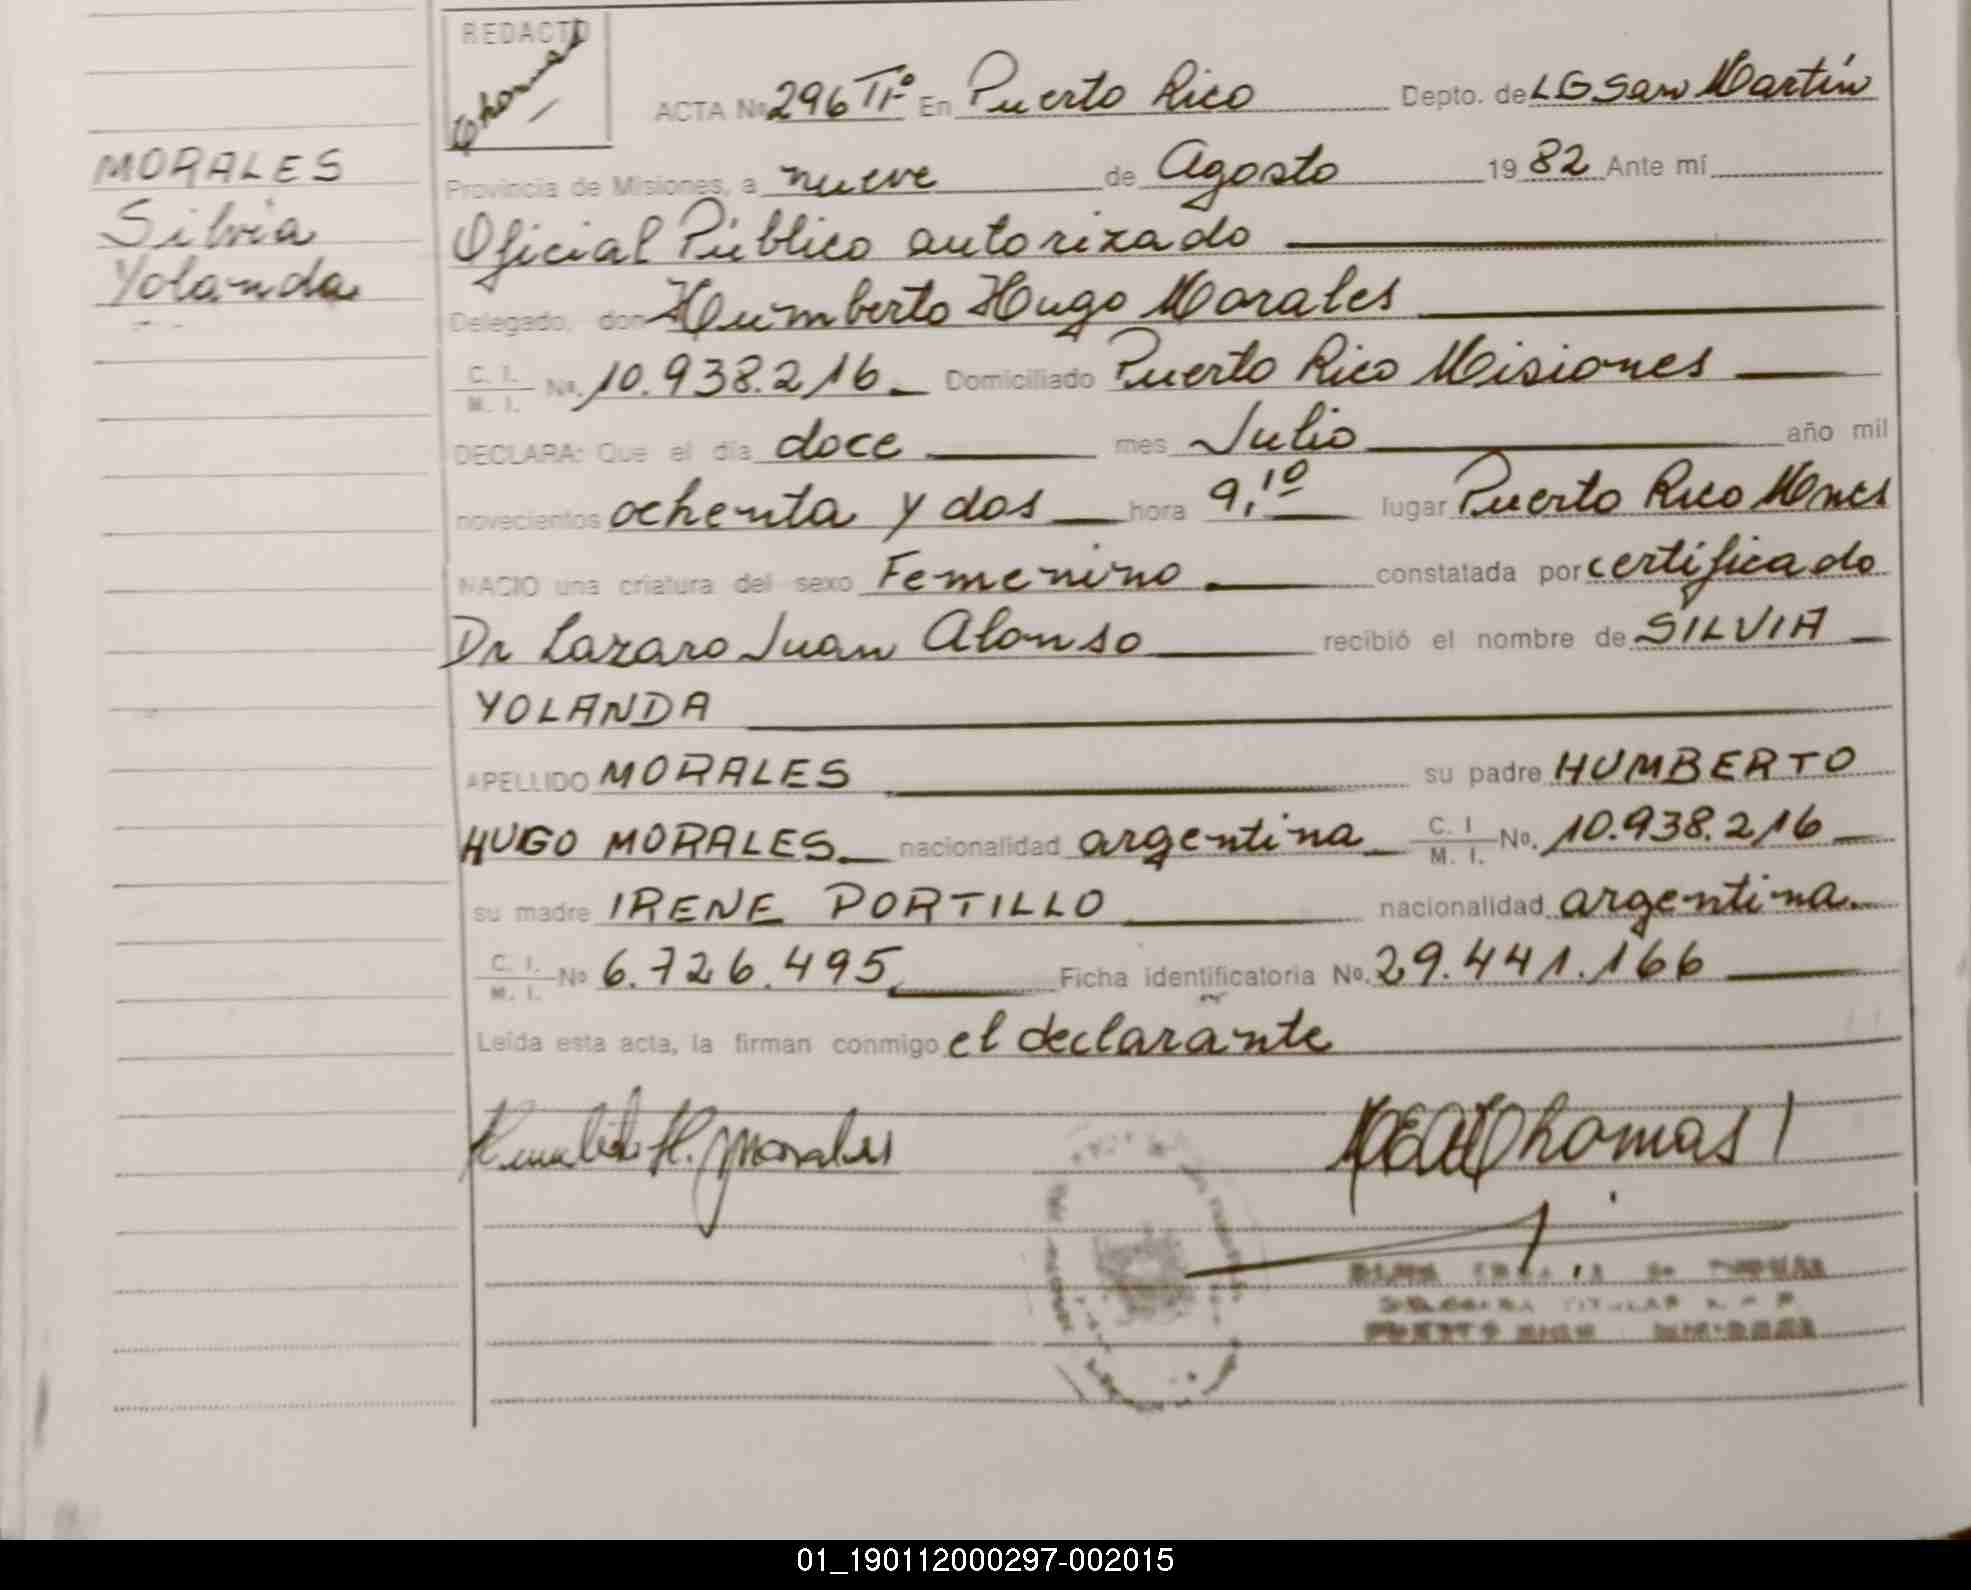 REDACTO
Thomas
ACTA No 296 Tº IIº En Puerto Rico Depto. de LG San Martín
MORALES
Silvia
Yolanda
Provincia de Misiones, a nueve de Agosto 1982 Ante mí
Oficial Público autorizado
Delegado, don Humberto Hugo Morales
C. I. / M. I. No. 10.938.216. Domiciliado Puerto Rico Misiones
DECLARA: Que el día doce mes Julio año mil
novecientos ochenta y dos hora 9,10 lugar Puerto Rico Mnes
NACIO una criatura del sexo Femenino constatada por certificado
Dr Lazaro Juan Alonso recibió el nombre de SILVIA
YOLANDA
APELLIDO MORALES su padre HUMBERTO
HUGO MORALES nacionalidad argentina C. I / M. I. No. 10.938.216
su madre IRENE PORTILLO nacionalidad argentina
C. I. / M. I. No 6.726.495 Ficha identificatoria No. 29.441.166
Leída esta acta, la firman conmigo el declarante
Humberto H. Morales
Thomas
PUERTO RICO MISIONES
01_190112000297-002015